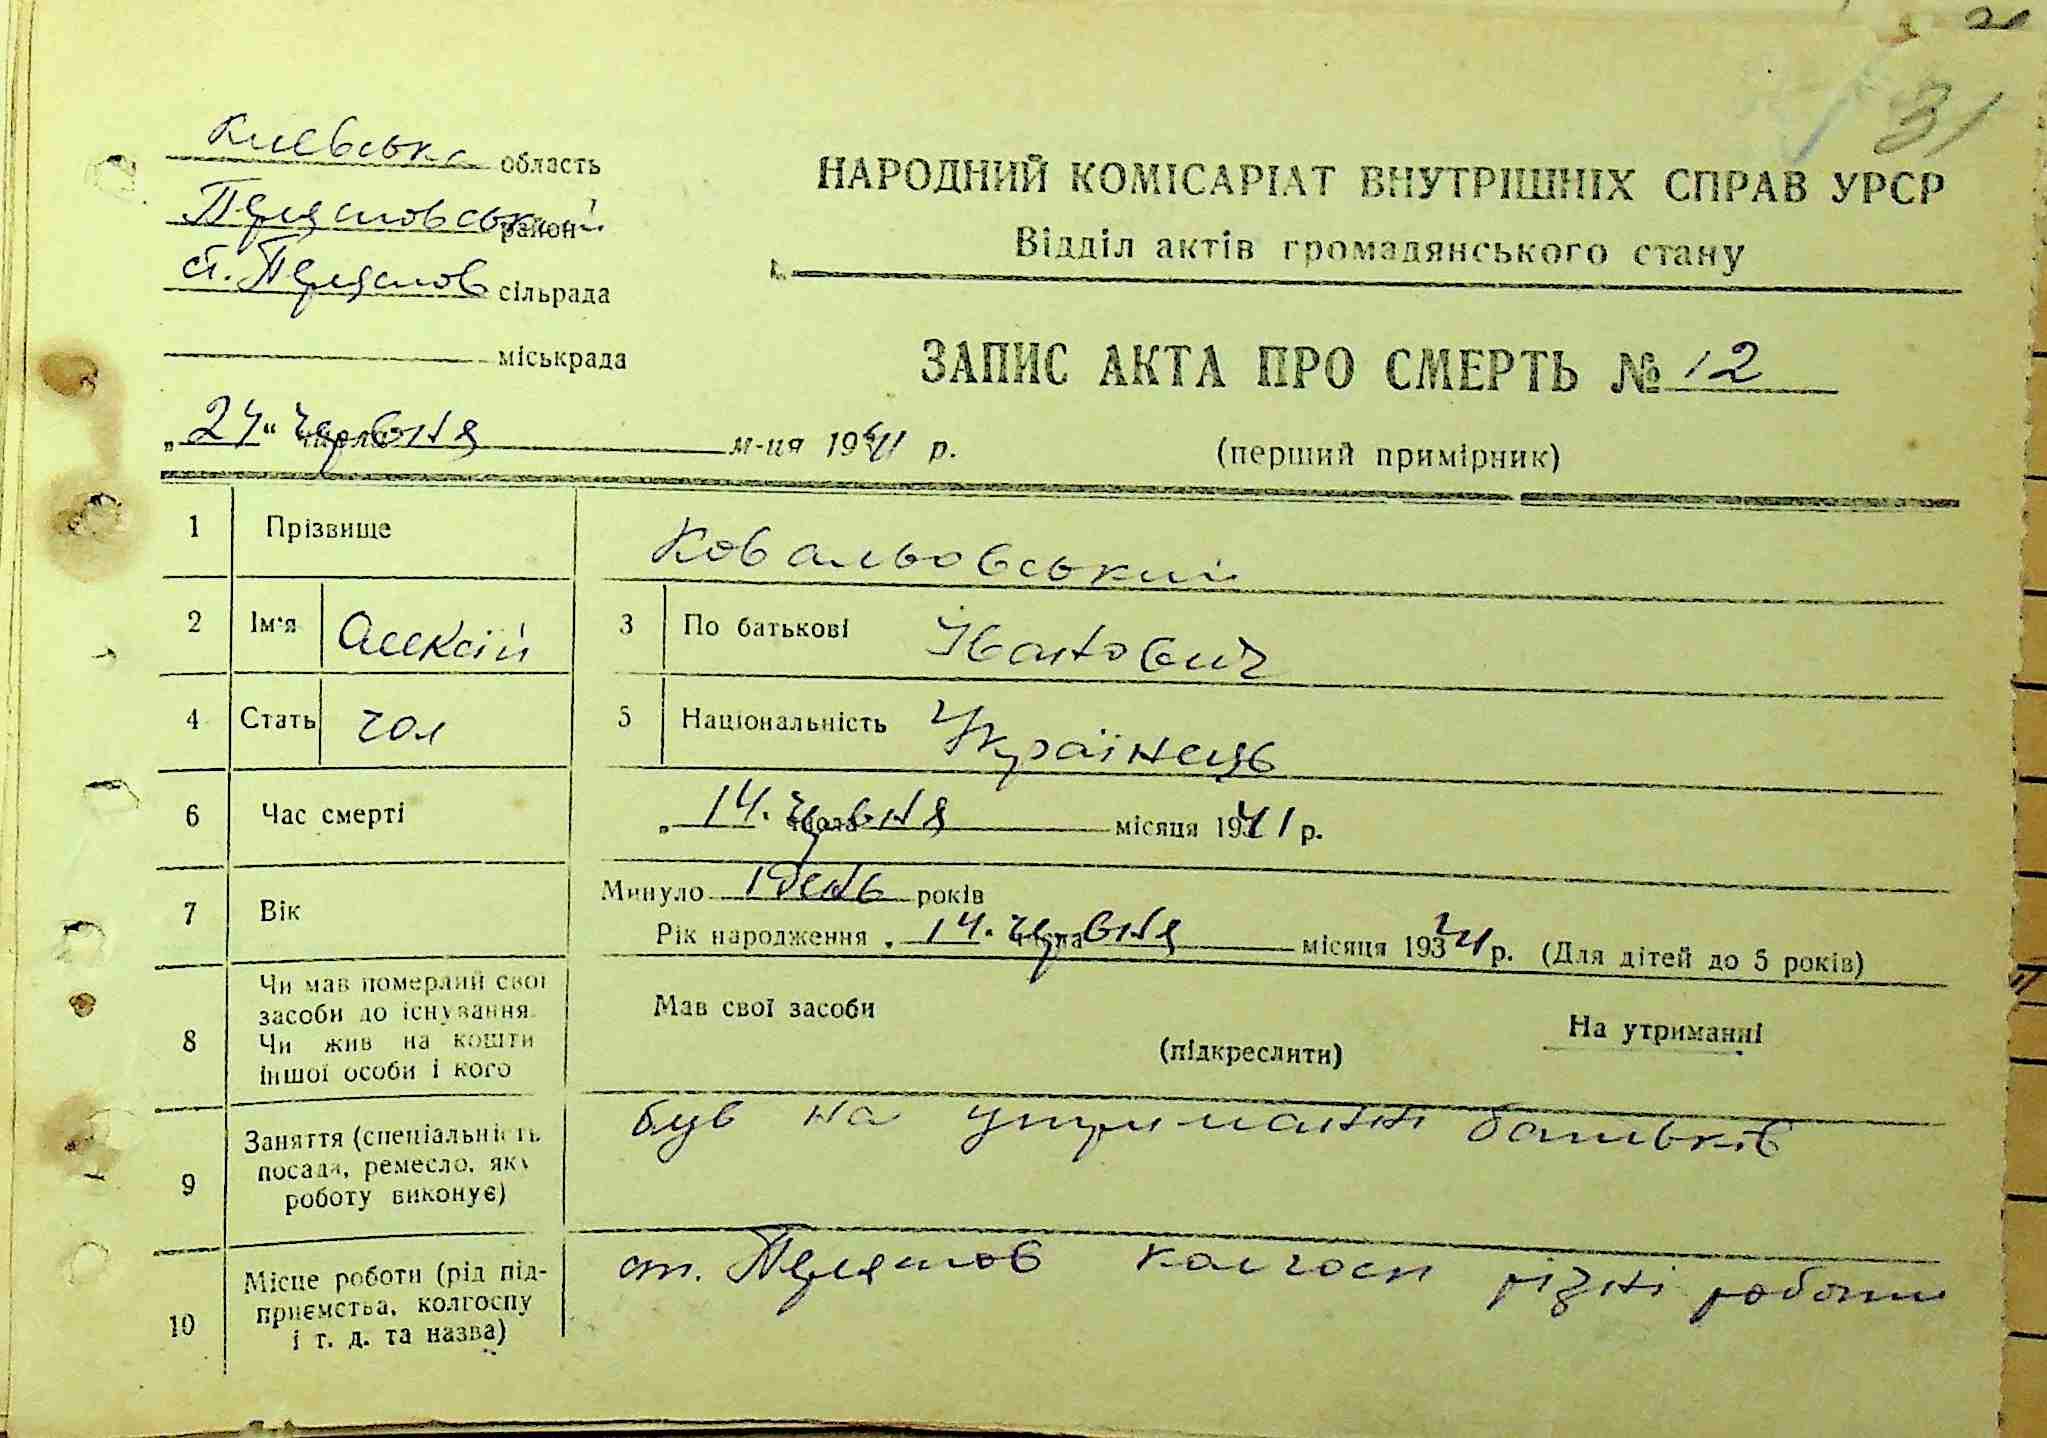 31
Київська область
НАРОДНИЙ КОМІСАРІАТ ВНУТРІШНІХ СПРАВ УРСР
Переяславський район
Відділ актів громадянського стану
ст. Переяслов сільрада
міськрада
ЗАПИС АКТА ПРО СМЕРТЬ № 12
„24“ червня м-ця 1941 р.
(перший примірник)
1 Прізвище Ковальовський
2 Ім'я Алексій 3 По батькові Іванович
4 Стать чол 5 Національність Українець
6 Час смерті „14. червня місяця 1941 р.
7 Вік Минуло 1 день років
Рік народження „14. червня місяця 1941 р. (Для дітей до 5 років)
8 Чи мав померлий свої засоби до існування. Чи жив на кошти іншої особи і кого
Мав свої засоби (підкреслити) На утриманні
9 Заняття (спеціальність посада, ремесло, яку роботу виконує)
був на утриманні батьків
10 Місце роботи (рід підприємства, колгоспу і т. д. та назва)
ст. Переяслов колгосп різні роботи